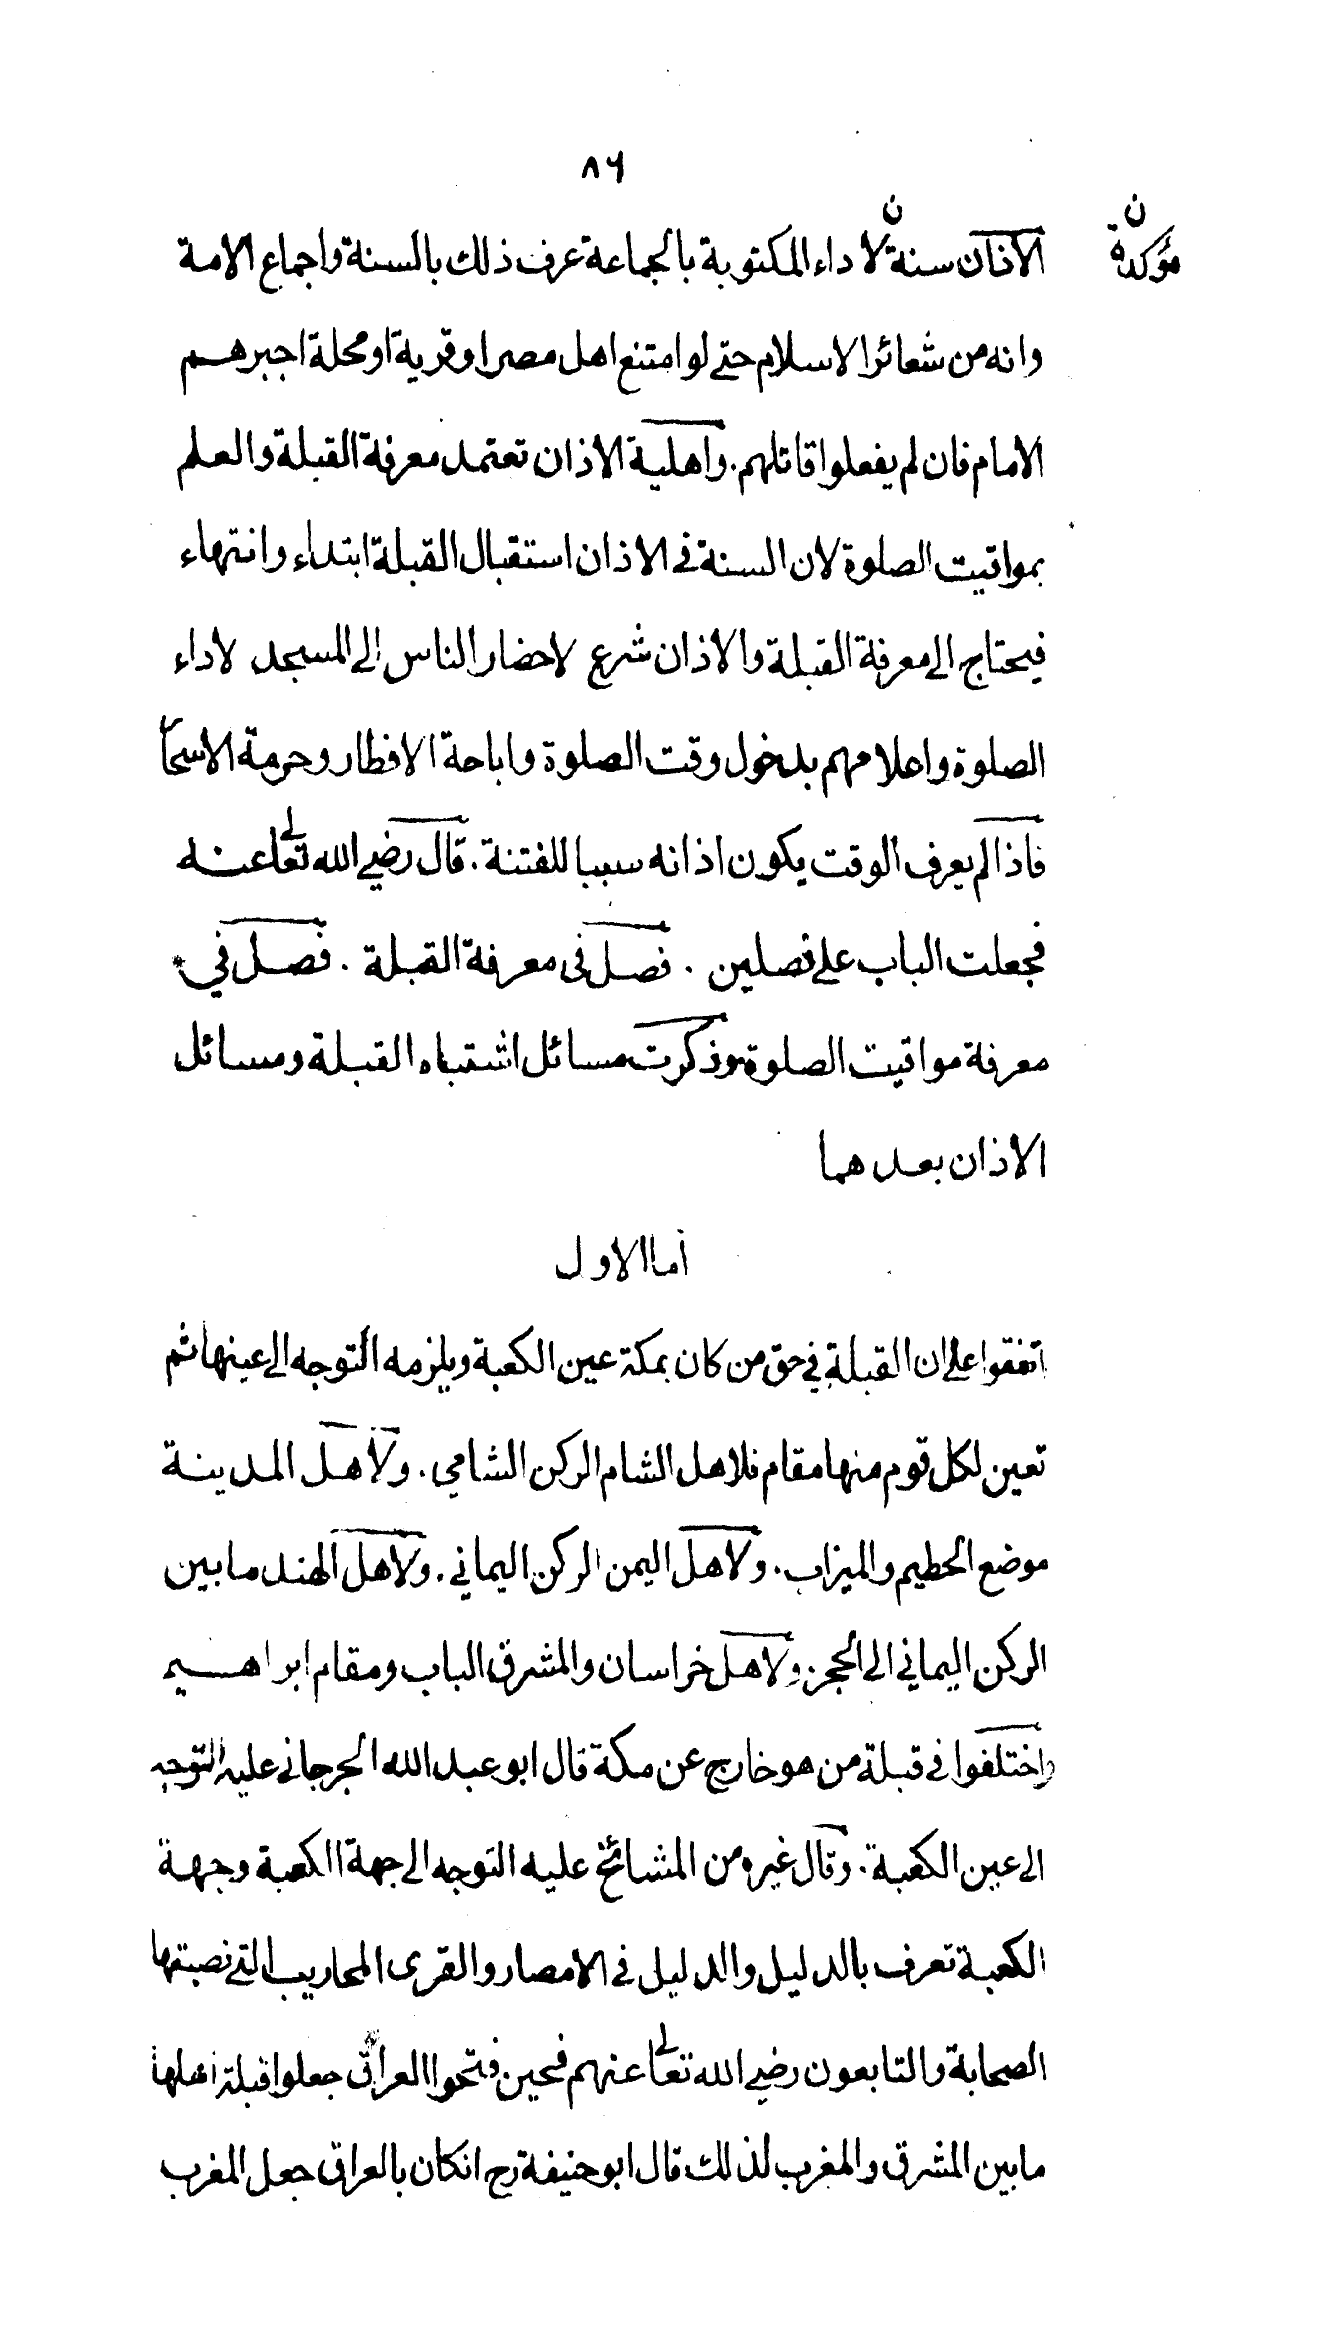 ٨٦
ن
ن
مؤكدة
الاذان سنة لاداء المكتوبة بالجماعة عرف ذلك بالسنة واجماع الامة
وانه من شعائر الاسلام حتى لو امتنع اهل مصر او قرية او محلة اجبرهم
الامام فان لم يفعلوا قاتلهم. واهلية الاذان تعتمد معرفة القبلة والعلم
بمواقيت الصلوة لان السنة في الاذان استقبال القبلة ابتداء وانتهاء
فيحتاج الى معرفة القبلة والاذان شرع لاحضار الناس الى المسجد لاداء
الصلوة واعلامهم بدخول وقت الصلوة واباحة الافطار وحرمة الاسحا
فاذا لم يعرف الوقت يكون اذانه سببا للفتنة. قال رضي الله تعالى عنه
فجعلت الباب على فصلين . فصل فى معرفة القبلة . فصل في *
معرفة مواقيت الصلوة وذكرت مسائل اشتباه القبلة ومسائل
الاذان بعدهما
أما الاول
اتفقوا على ان القبلة في حق من كان بمكة عين الكعبة ويلزمه التوجه الى عينها ثم
تعين لكل قوم منها مقام فلاهل الشام الركن الشامي. ولأهل المدينة
موضع الحطيم والميزاب. ولاهل اليمن الركن اليماني. ولاهل الهند مابين
الركن اليماني الى الحجر. ولاهل خراسان والمشرق الباب ومقام ابراهيم
واختلفوا في قبلة من هو خارج عن مكة قال ابو عبد الله الجرجاني عليه التوجه
الى عين الكعبة. وقال غيره من المشائخ عليه التوجه الى جهة الكعبة وجهة
الكعبة تعرف بالدليل والدليل في الامصار والقرى المحاريب التي نصبتها
الصحابة والتابعون رضي الله تعالى عنهم فحين فتحوا العراق جعلوا قبلة اهلها
مابين المشرق والمغرب لذلك قال ابو حنيفة رح انكان بالعراق جعل المغرب